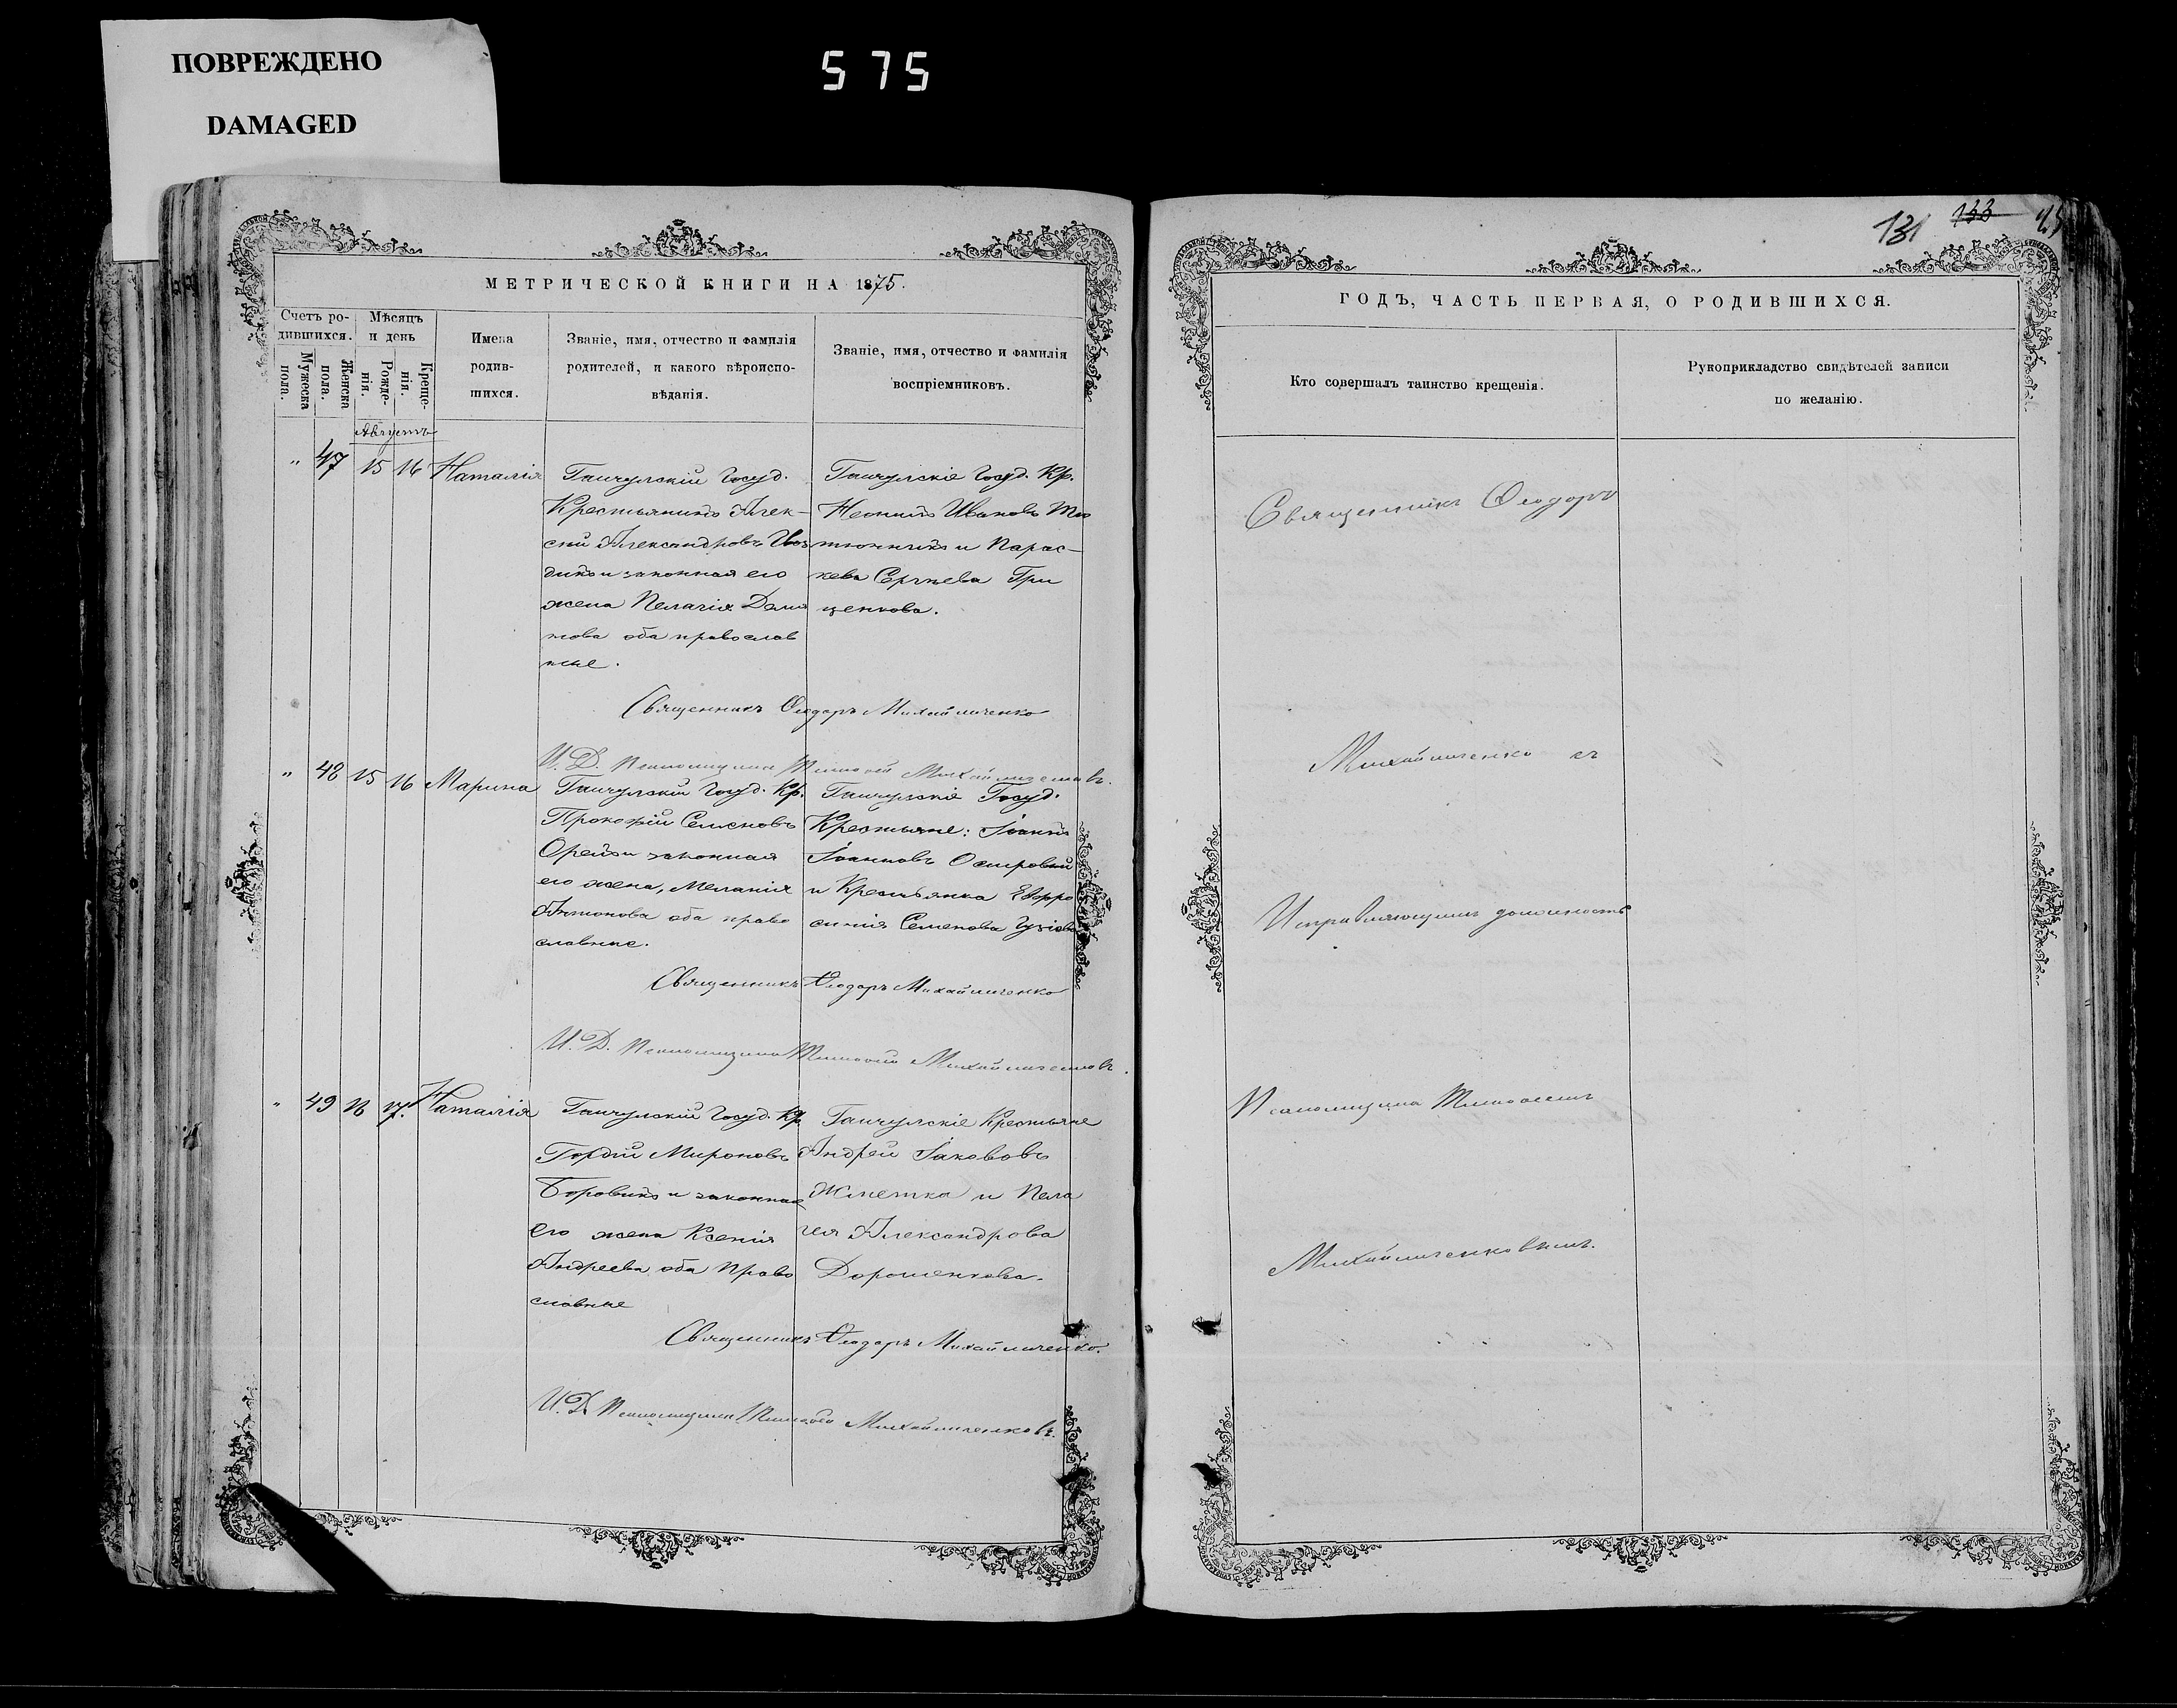 ПОВРЕЖДЕНО
DAMAGED
575
131 133
МЕТРИЧЕСКОЙ КНИГИ НА 1875.
Счетъ родившихся.
Мужеска пола.
Женска пола.
Мѣсяцъ и день
Рожденія.
Крещенія.
Имена родившихся.
Званіе, имя, отчество и фамилія
родителей, и какого вѣроиспо-
вѣданія.
Званіе, имя, отчество и фамилія
воспріемниковъ.
Августъ
" 47 15 16 Наталія
Гайчулскій Госуд.
Крестьянинъ Алек-
сій Александровъ
и законная его
жена Пелагія
оба православ
ные.
Гайчулскіе Госуд. Кр.
Ивановъ
и Парас-
кева Сергѣева Гри
ценкова.
Священникъ Ѳеодоръ Михайличенко
И. Д. Псаломщика Тимофей Михайличенковъ.
" 48 15 16 Марина
Гайчулскій Госуд. Кр.
Прокофій Семеновъ
и законная
его жена, Меланія
Антонова оба право
славные.
Гайчулскіе Госуд.
Крестьяне: Іоаннъ
Іоанновъ
и Крестьянка Евфро
синія Семенова
Священникъ Ѳеодоръ Михайличенко
И. Д. Псаломщика Тимофей Михайличенковъ.
" 49 16 17. Наталія
Гайчулскій Госуд. Кр.
Гордій Мироновъ
Боровикъ и законная
его жена Ксенія
Андреева оба право
славные
Гайчулскіе Крестьяне
Андрей Іакововъ
и Пела
гея Александрова
Дорошенкова.
Священникъ Ѳеодоръ Михайличенко.
И. Д. Псаломщика Тимофей Михайличенковъ.
ГОДЪ, ЧАСТЬ ПЕРВАЯ, О РОДИВШИХСЯ.
Кто совершалъ таинство крещенія.
Рукоприкладство свидѣтелей записи
по желанію.
Священникъ Ѳеодоръ
Михайличенко съ
Исправляющимъ должность
Псаломщика Тимофеемъ
Михайличенковымъ.